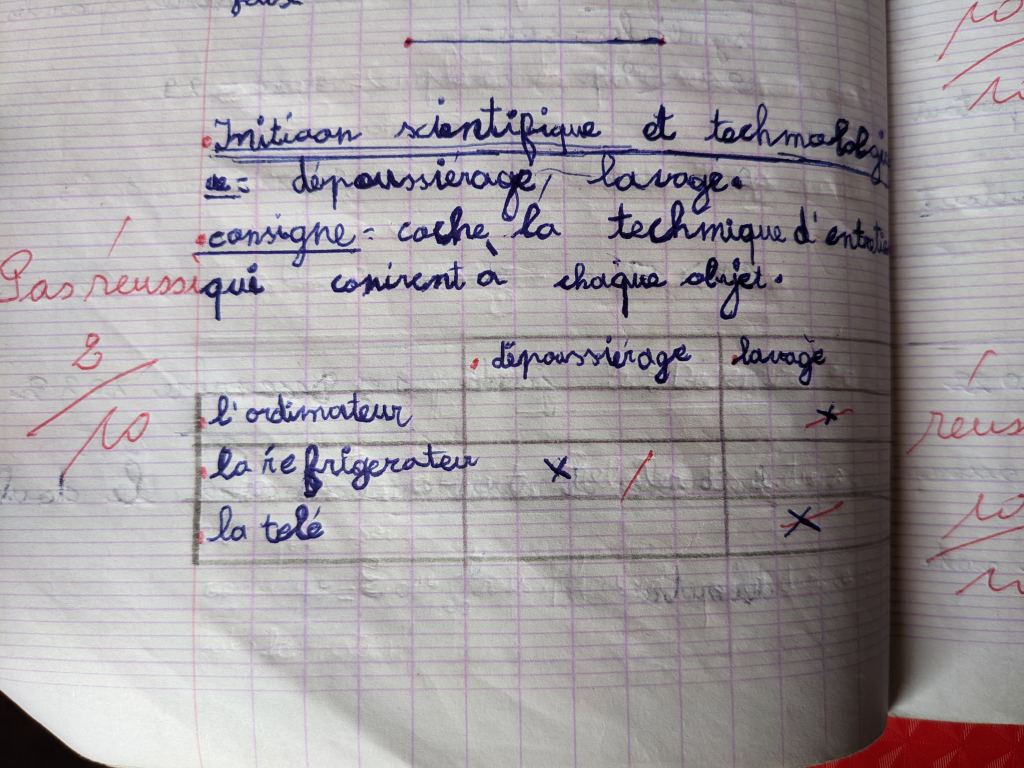 Initiaon scientifique et technologi
que = dépoussiérage, lavage.
consigne = coche la technique d'entretie
Pas réussi qui convient à chaque objet.
2
10
dépoussiérage lavage
l'ordinateur x
la réfrigerateur x
la telé x
10
réus
10